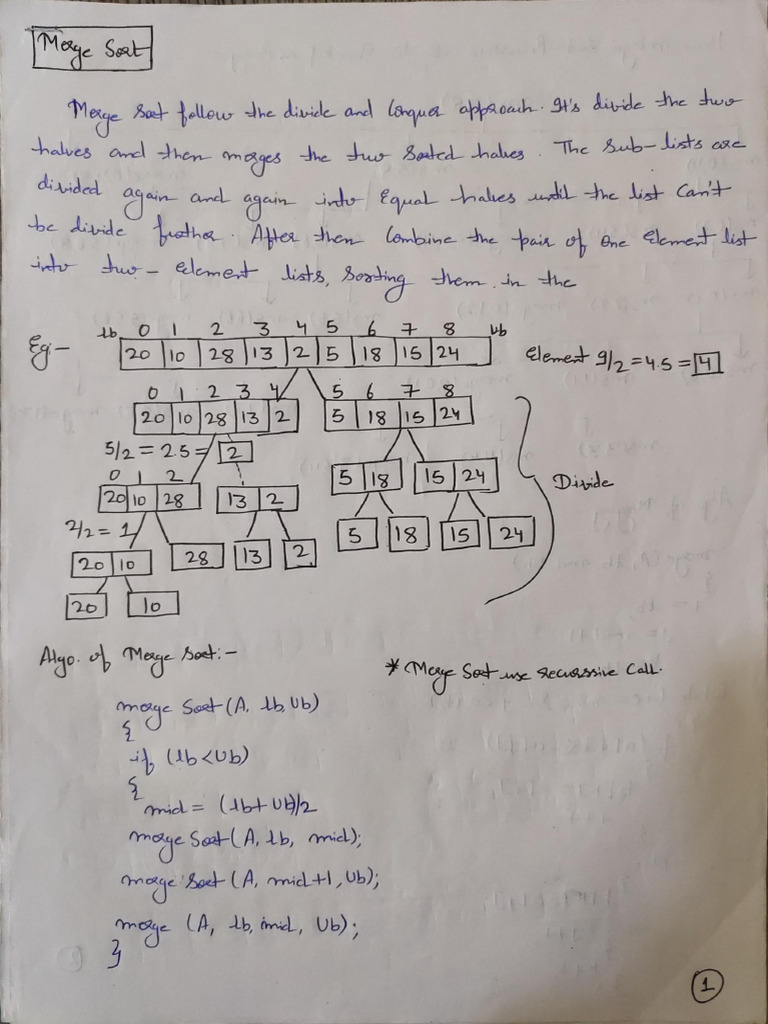 Merge Sort
Merge Sort follow the divide and Conquer approach. It's divide the two
halves and then merges the two Sorted halves. The Sub-lists are
divided again and again into Equal halves until the list Can't
be divide further. After then Combine the pair of one Element list
into two-element lists, Sorting them in the
Eg:- lb 0 1 2 3 4 5 6 7 8 Ub
20 10 28 13 2 5 18 15 24 Element 9/2 = 4.5 = 4
0 1 2 3 4 5 6 7 8
20 10 28 13 2 5 18 15 24
5/2 = 2.5 = 2
0 1 2
20 10 28 13 2 5 18 15 24 Divide
2/2 = 1
20 10 28 13 2 5 18 15 24
20 10
Algo. of Merge Sort:-
* Merge Sort use recurssive Call.
merge Sort (A, lb, Ub)
{
if (lb < Ub)
{
mid = (lb + Ub)/2
merge Sort (A, lb, mid);
merge Sort (A, mid+1, Ub);
merge (A, lb, mid, Ub);
}
1